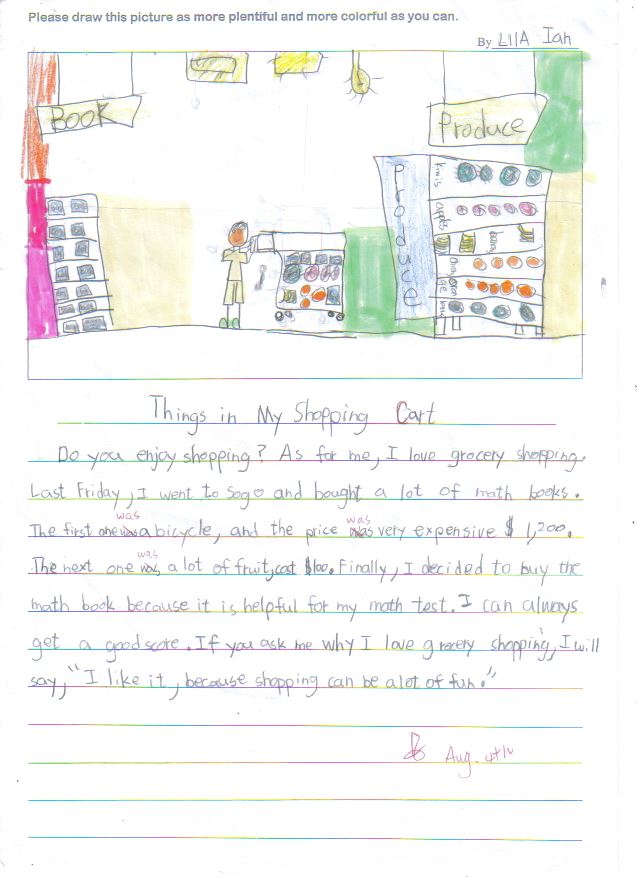 Please draw this picture as more plentiful and more colorful as you can.
By L11A Ian
Book
Produce
Produce
kiwis
apples
Orange
Things in My Shopping Cart
Do you enjoy shopping? As for me, I love grocery shopping.
Last Friday, I went to Sogo and bought a lot of math books.
was was
The first one was a bicycle, and the price was very expensive $1,200.
was
The next one was a lot of fruit, cost $100. Finally, I decided to buy the
math book because it is helpful for my math test. I can always
get a good score. If you ask me why I love grocery shopping, I will
say, "I like it, because shopping can be a lot of fun."
Aug. 4th